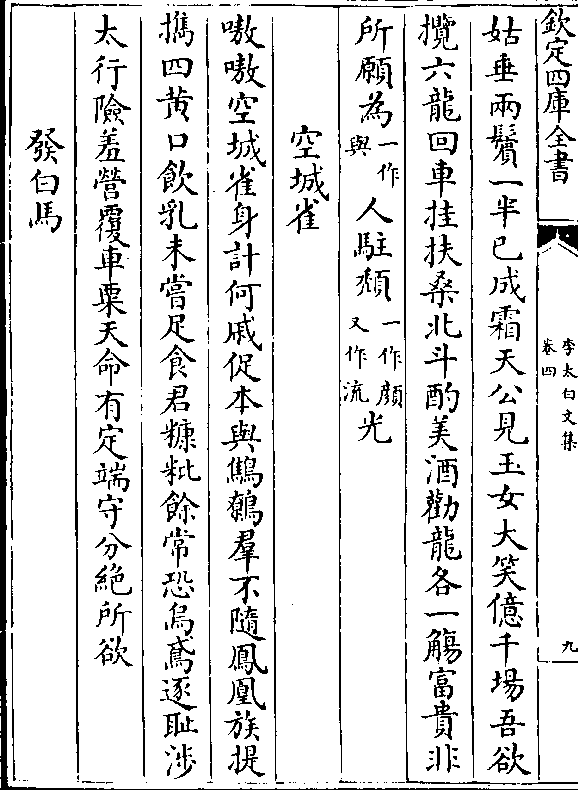 欽定四庫全書
李太白文集
卷四
九
姑垂兩鬢一半已成霜天公見玉女大笑億千場吾欲
攬六龍回車挂扶桑北斗酌美酒勸龍各一觴富貴非
所願為一作與人駐頹一作顔又作流光
空城雀
嗷嗷空城雀身計何戚促本與鷦鷯羣不隨鳳凰族提
㩗四黄口飲乳未嘗足食君糠粃餘常恐烏鳶逐耻涉
太行險羞營覆車粟天命有定端守分絶所欲
發白馬